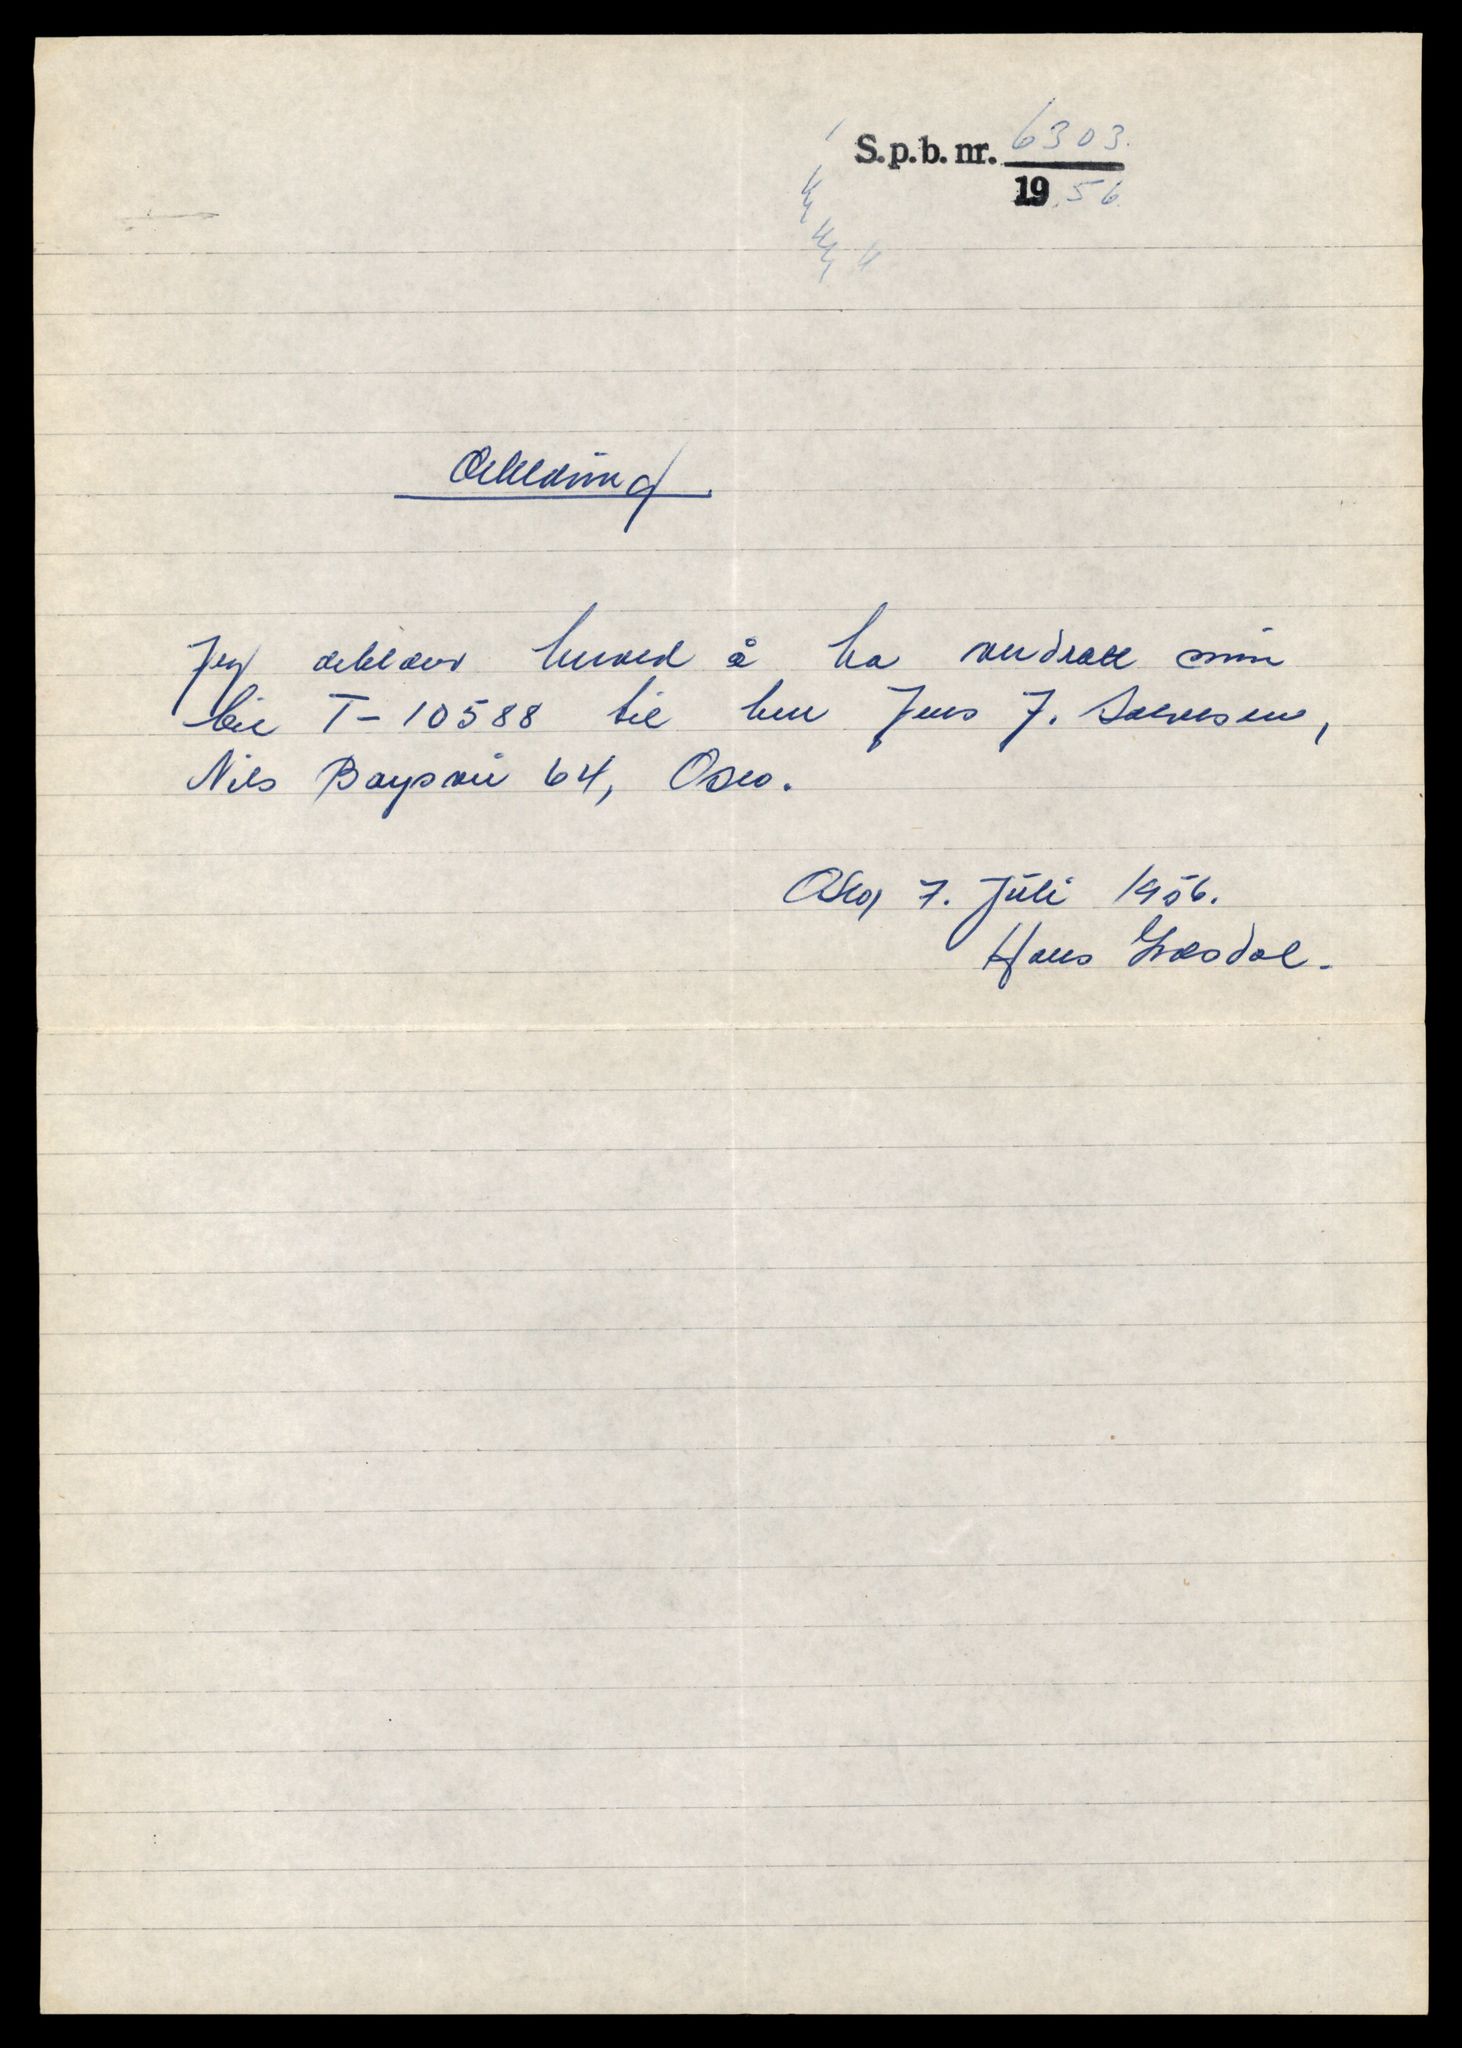 S.p.b. nr. 6303.
19.56.
Erklæring
Jeg erklærer herved å ha overdratt min
bil T-10588 til herr Jens J. Salvesen,
Nils Baysvei 64, Oslo.
Oslo, 7. Juli 1956.
Hans Græsdal.